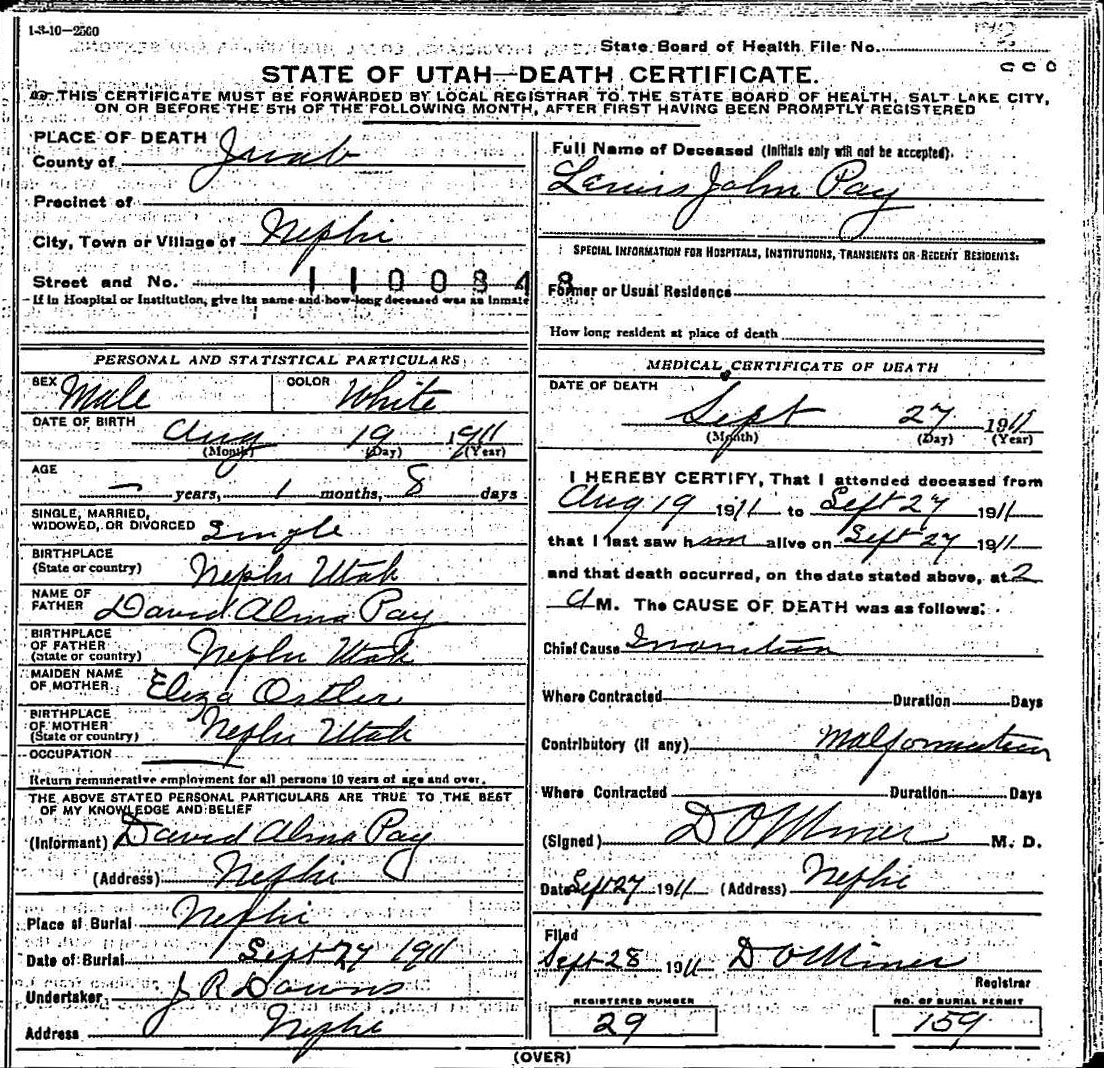 1-3-10—2500
State Board of Health File No.
STATE OF UTAH—DEATH CERTIFICATE.
THIS CERTIFICATE MUST BE FORWARDED BY LOCAL REGISTRAR TO THE STATE BOARD OF HEALTH, SALT LAKE CITY,
ON OR BEFORE THE 5TH OF THE FOLLOWING MONTH, AFTER FIRST HAVING BEEN PROMPTLY REGISTERED
PLACE OF DEATH
County of Juab
Precinct of
City, Town or Village of Nephi
Street and No.
1100848
If in Hospital or Institution, give its name and how long deceased was an inmate
Full Name of Deceased (Initials only will not be accepted).
Lewis John Pay
SPECIAL INFORMATION FOR HOSPITALS, INSTITUTIONS, TRANSIENTS OR RECENT RESIDENTS:
Former or Usual Residence
How long resident at place of death
PERSONAL AND STATISTICAL PARTICULARS
SEX Male COLOR White
DATE OF BIRTH Aug 19 1911
(Month) (Day) (Year)
AGE
— years, 1 months, 8 days
SINGLE, MARRIED,
WIDOWED, OR DIVORCED Single
BIRTHPLACE
(State or country) Nephi Utah
NAME OF
FATHER David Alma Pay
BIRTHPLACE
OF FATHER
(State or country) Nephi Utah
MAIDEN NAME
OF MOTHER Eliza Ostler
BIRTHPLACE
OF MOTHER
(State or country) Nephi Utah
OCCUPATION
Return remunerative employment for all persons 10 years of age and over.
THE ABOVE STATED PERSONAL PARTICULARS ARE TRUE TO THE BEST
OF MY KNOWLEDGE AND BELIEF
(Informant) David Alma Pay
(Address) Nephi
Place of Burial Nephi
Date of Burial Sept 27 1911
Undertaker J R Downs
Address Nephi
MEDICAL CERTIFICATE OF DEATH
DATE OF DEATH
Sept 27 1911
(Month) (Day) (Year)
I HEREBY CERTIFY, That I attended deceased from
Aug 19 1911 to Sept 27 1911
that I last saw him alive on Sept 27 1911
and that death occurred, on the date stated above, at 2
A M. The CAUSE OF DEATH was as follows:
Chief Cause Inanition
Where Contracted Duration Days
Contributory (if any) Malformation
Where Contracted Duration Days
(Signed) D O Miner M. D.
Date Sept 27 1911 (Address) Nephi
Filed
Sept 28 1911 D O Miner
Registrar
REGISTERED NUMBER
29
NO. OF BURIAL PERMIT
159
(OVER)